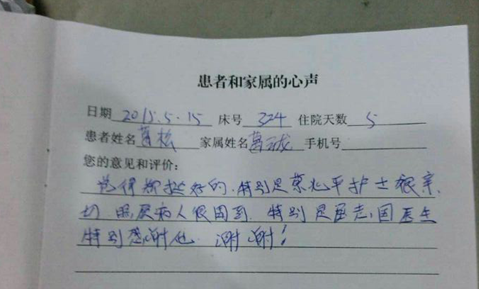 患者和家属的心声
日期 2015.5.15 床号 324 住院天数 5
患者姓名 葛松 家属姓名 葛 手机号
您的意见和评价：
觉得挺好的.特别是 护士很亲
切 照顾病人很周到.特别是 志国医生
特别感谢他.谢谢！